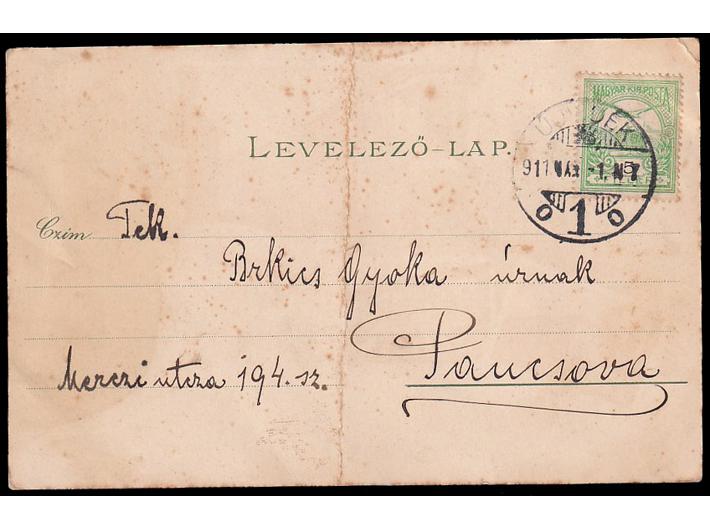 MAGYAR KIR. POSTA
ÚJVIDÉK
LEVELEZŐ-LAP.
911 -1. N 7
5
1
Czim Tek.
Brkics Gyoka úrnak
Pancsova
Merczi utcza 194. sz.